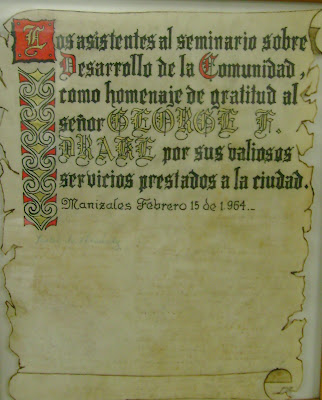 Los asistentes al seminario sobre
Desarrollo de la Comunidad,
como homenaje de gratitud al
señor GEORGE F.
DRAKE por sus valiosos
servicios prestados a la ciudad.
Manizales Febrero 15 de 1.964._